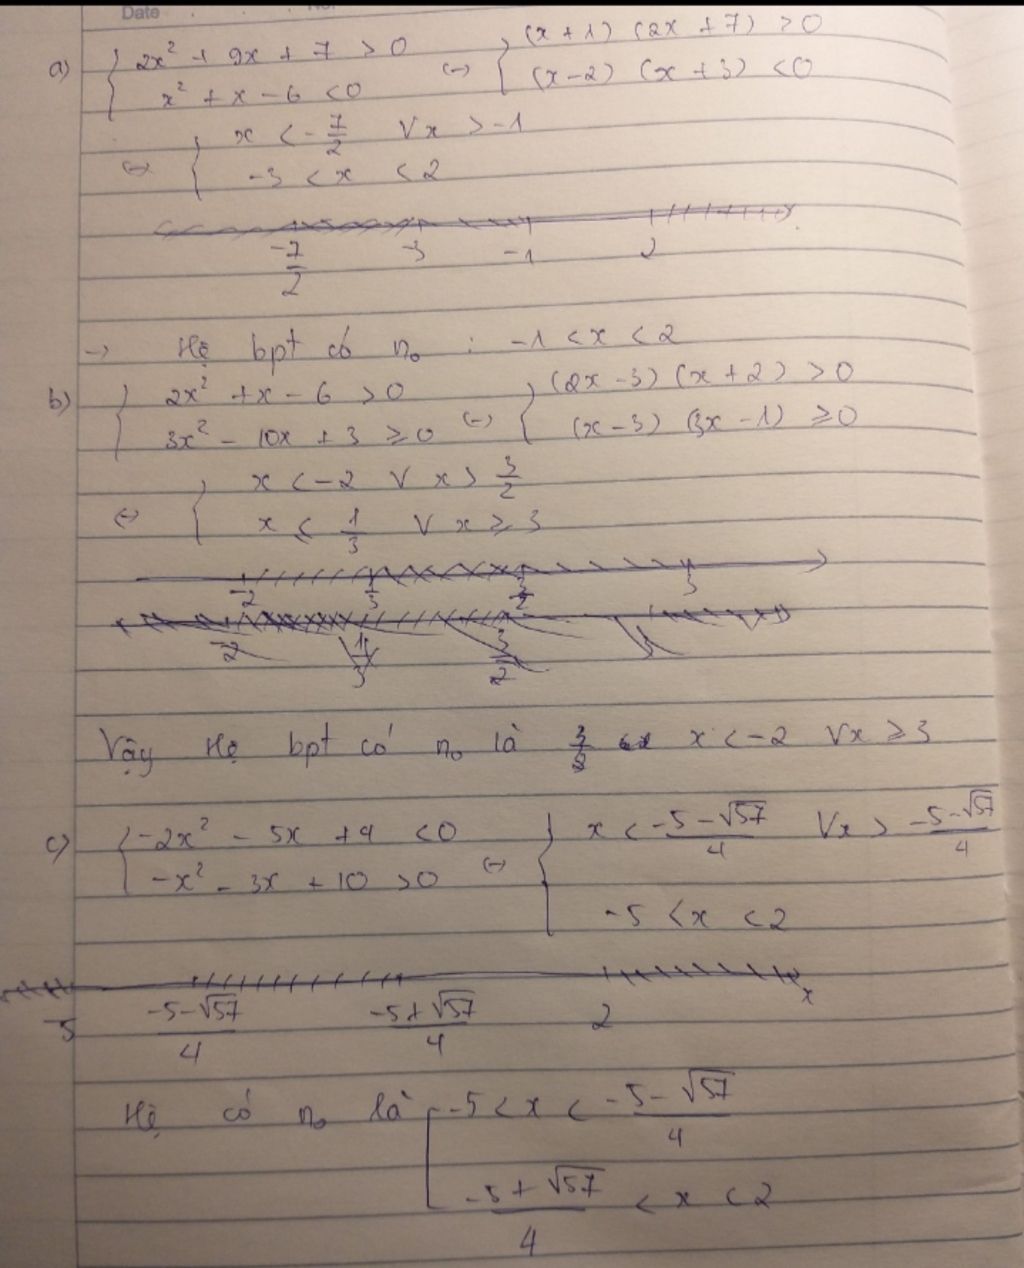 Date
a) { 2x² + 9x + 7 > 0 (-) { (x + 1) (2x + 7) > 0
x² + x - 6 < 0 (x - 2) (x + 3) < 0
(-) { x < -7/2 V x > -1
-3 < x < 2
-7/2 -3 -1 2
-> Hệ bpt có no : -1 < x < 2
b) { 2x² + x - 6 > 0 (-) { (2x - 3) (x + 2) > 0
3x² - 10x + 3 ≥ 0 (x - 3) (3x - 1) ≥ 0
(-) { x < -2 V x > 3/2
x ≤ 1/3 V x ≥ 3
-2 1/3 3/2 3
-2 1/3 3/2
Vậy Hệ bpt có no là x < -2 V x ≥ 3
c) { -2x² - 5x + 4 < 0 (-) { x < (-5 - √57)/4 V x > (-5 - √57)/4
-x² - 3x + 10 > 0
-5 < x < 2
-5 (-5 - √57)/4 (-5 + √57)/4 2 x
Hệ có no là [ -5 < x < (-5 - √57)/4
(-5 + √57)/4 < x < 2